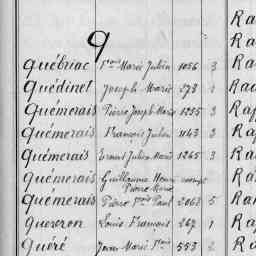 Ra
q Ra
Québriac Fcois Marie Julien 1056 3 Ra
Quédinet Joseph Marie 273 1 Rad
Quémerais Pierre Joseph Marie 1255 3 Raf
Quémerais François Julien 1143 3 Raf
Quémerais Ernest Julien Marie 1265 3 Raf
Quémerais Guillaume Henri Pierre Marie Raf
Quémerais Pierre Fcois Paul 2068 5 Ra
Queseron Louis François 267 1 Ra
Quéré Jean Marie 553 2 Ra